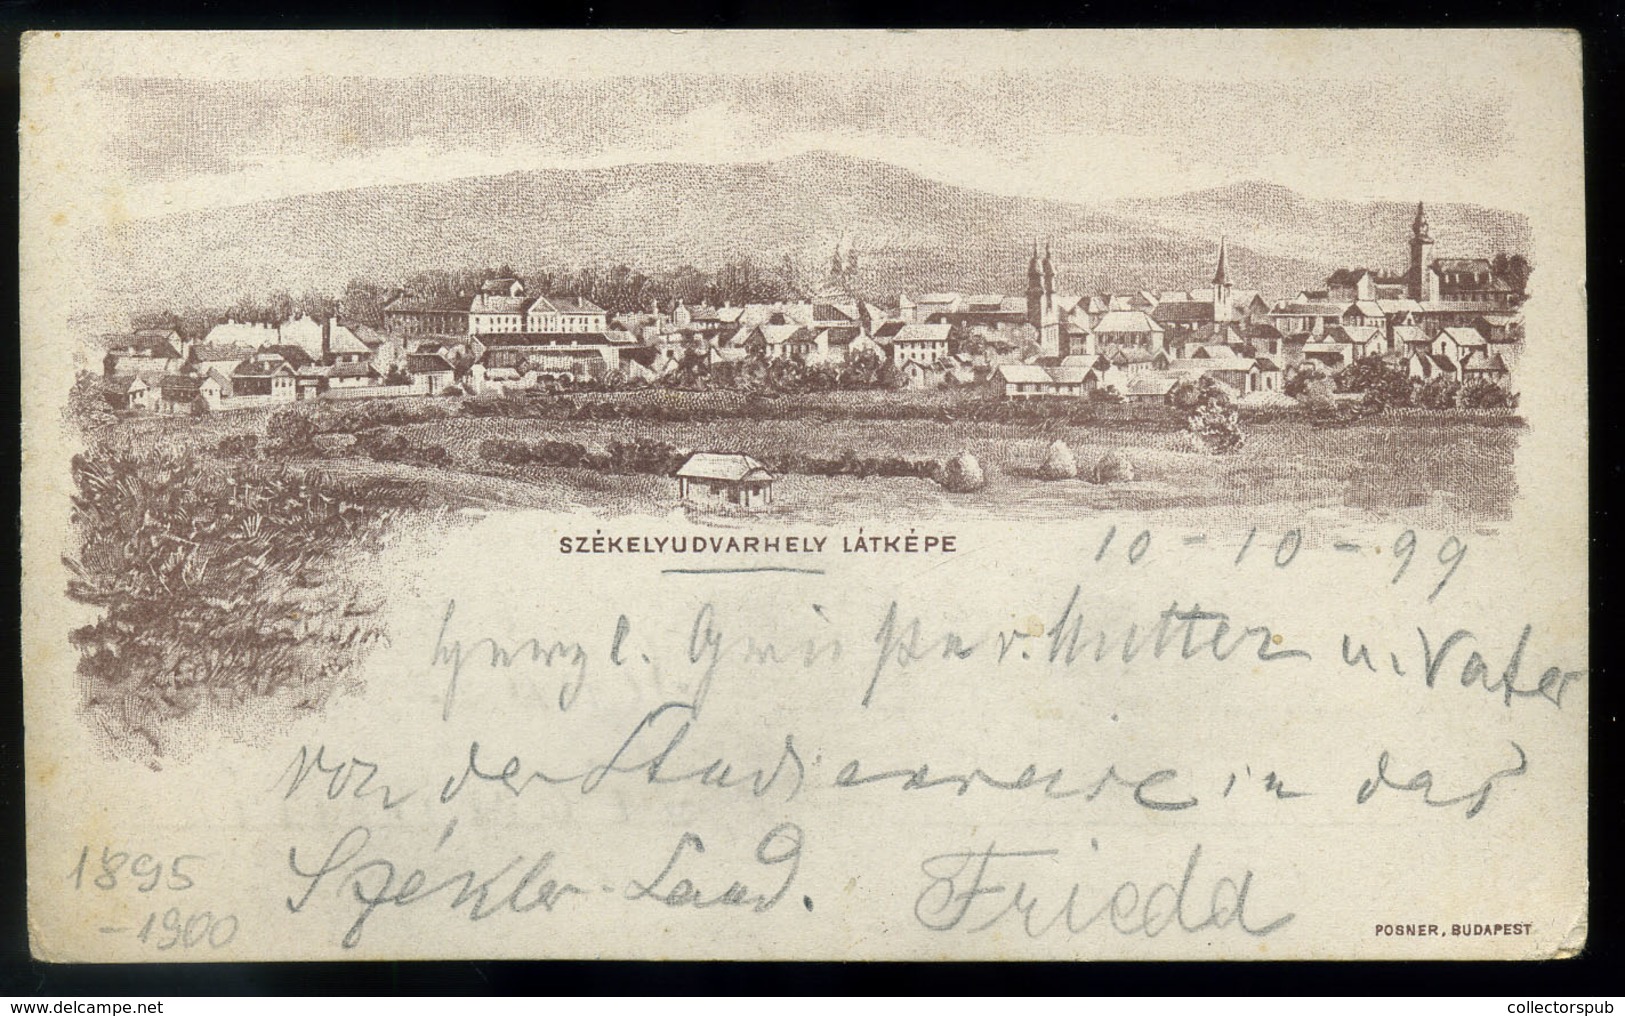 SZÉKELYUDVARHELY LÁTKÉPE
10 - 10 - 99
Herzl. Grüsse v. Mutter u. Vater
von der Studienreise in das
Székler-Land. Frieda
1895
-1900
POSNER, BUDAPEST
www.delcampe.net
collectorspub